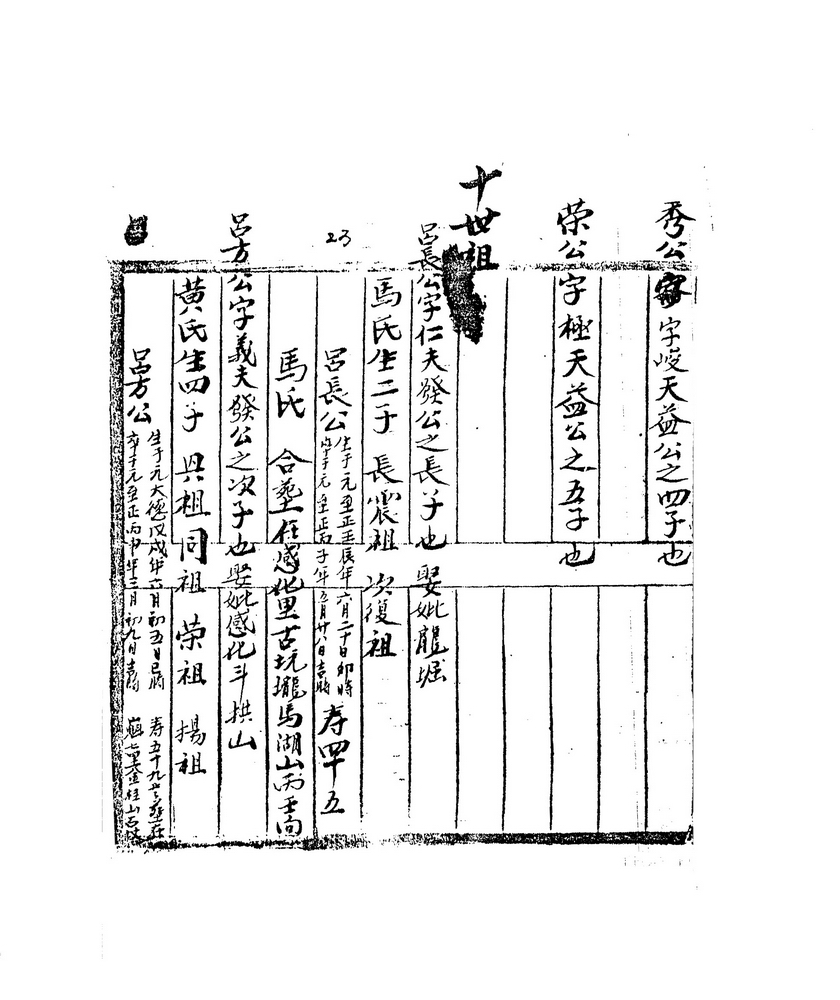 秀公字峻天益公之四子也
荣公字極天益公之五子也
十世祖
吕長公字仁夫發公之長子也 娶妣龍堀
馬氏生二子 長震祖 次復祖
23
吕長公 生于元至正壬辰年六月二十日卯時
卒于元至正丙子年五月廿八日吉時 寿四十五
馬氏 合塟在感化里古坑瓏馬湖山丙壬向
吕方公字義夫發公之次子也娶妣感化斗拱山
黄氏生四子 與祖同祖 荣祖 揚祖
吕方公 生于元大德戊戌年六月初五日巳時 寿五十九
卒于元至正丙申年三月初九日吉時